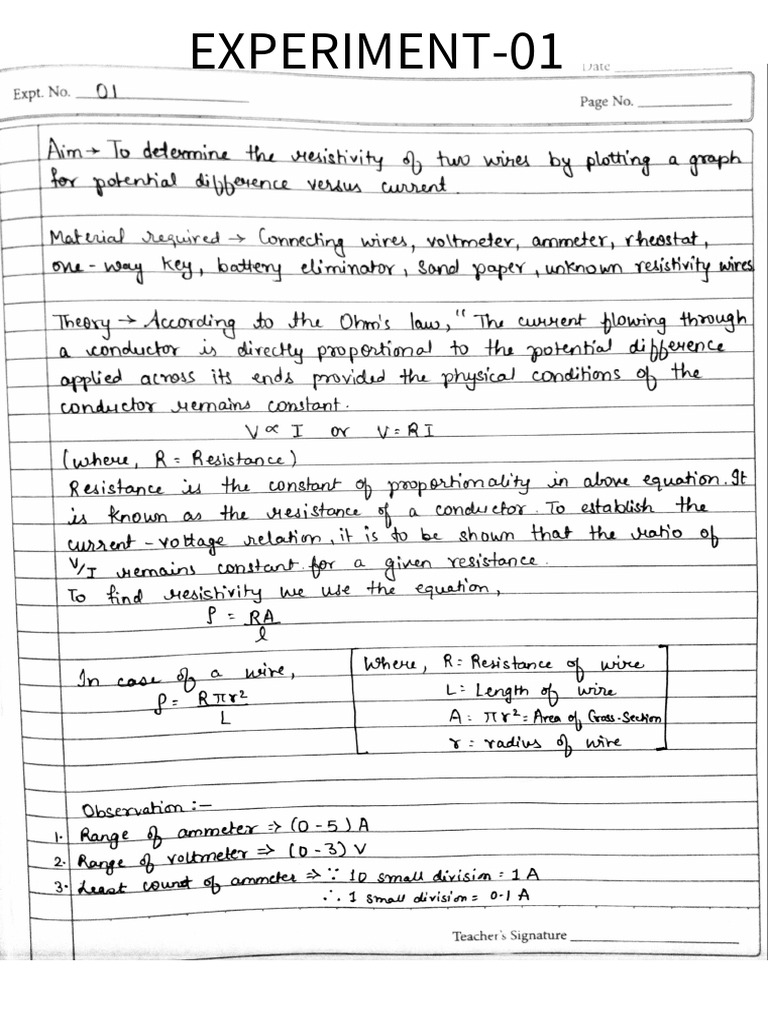 EXPERIMENT-01
Date
Expt. No. 01
Page No.
Aim → To determine the resistivity of two wires by plotting a graph
for potential difference versus current.
Material required → Connecting wires, voltmeter, ammeter, rheostat,
one-way key, battery eliminator, sand paper, unknown resistivity wires
Theory → According to the Ohm's law, "The current flowing through
a conductor is directly proportional to the potential difference
applied across its ends provided the physical conditions of the
conductor remains constant.
V ∝ I or V = RI
(where, R = Resistance)
Resistance is the constant of proportionality in above equation. It
is known as the resistance of a conductor. To establish the
current-voltage relation, it is to be shown that the ratio of
V/I remains constant for a given resistance.
To find resistivity we use the equation,
ρ = RA/l
In case of a wire,
ρ = Rπr²/L
Where, R = Resistance of wire
L = Length of wire
A = πr² = Area of Cross-Section
r = radius of wire
Observation :-
1. Range of ammeter ⇒ (0-5) A
2. Range of voltmeter ⇒ (0-3) V
3. Least count of ammeter ⇒ ∵ 10 small division = 1 A
∴ 1 small division = 0.1 A
Teacher's Signature